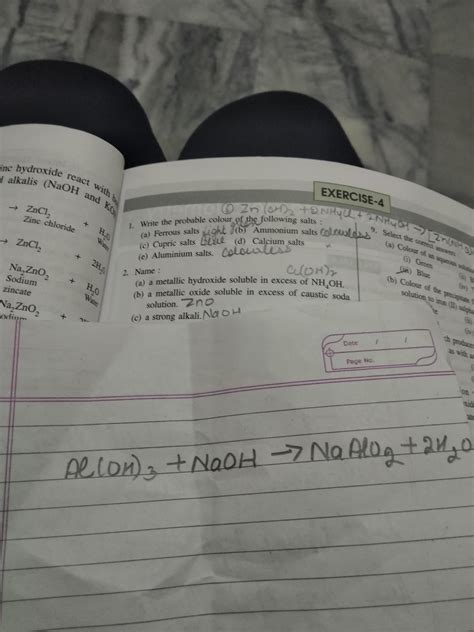 inc hydroxide react with
alkalis (NaOH and
→ ZnCl2 + H2O
Zinc chloride Water
→ ZnCl2 + 2H2O
Na2ZnO2 + H2O
Sodium Water
zincate
Na2ZnO2 +
EXERCISE-4
Zn(OH)2 + 2NH4Cl + 2NH4OH →
1. Write the probable colour of the following salts :
(a) Ferrous salts light (b) Ammonium salts colourless
(c) Cupric salts blue (d) Calcium salts
(e) Aluminium salts. colourless
2. Name : Cu(OH)2
(a) a metallic hydroxide soluble in excess of NH4OH.
(b) a metallic oxide soluble in excess of caustic soda
solution. ZnO
(c) a strong alkali. NaOH
9. Select the correct answers
(a) Colour of an aqueous
(i) Green
(iii) Blue
(b) Colour of the precipitate
solution to iron (II) sulphate
Date / /
Page No.
Al(OH)3 + NaOH → NaAlO2 + 2H2O